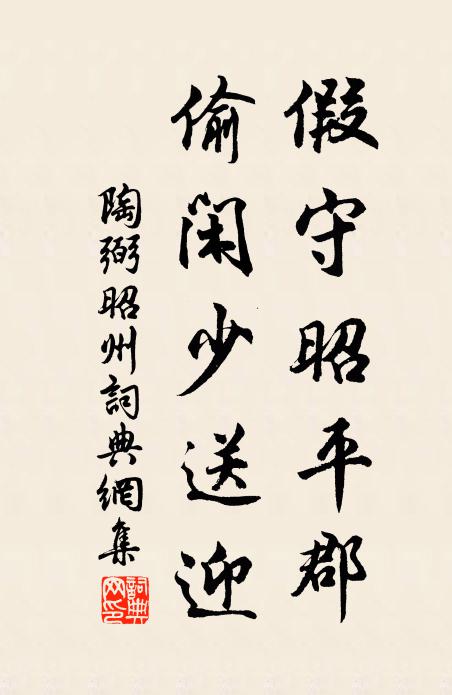 假守昭平郡
偷閑少送迎
陶弼昭州詞典網集
詞典网印